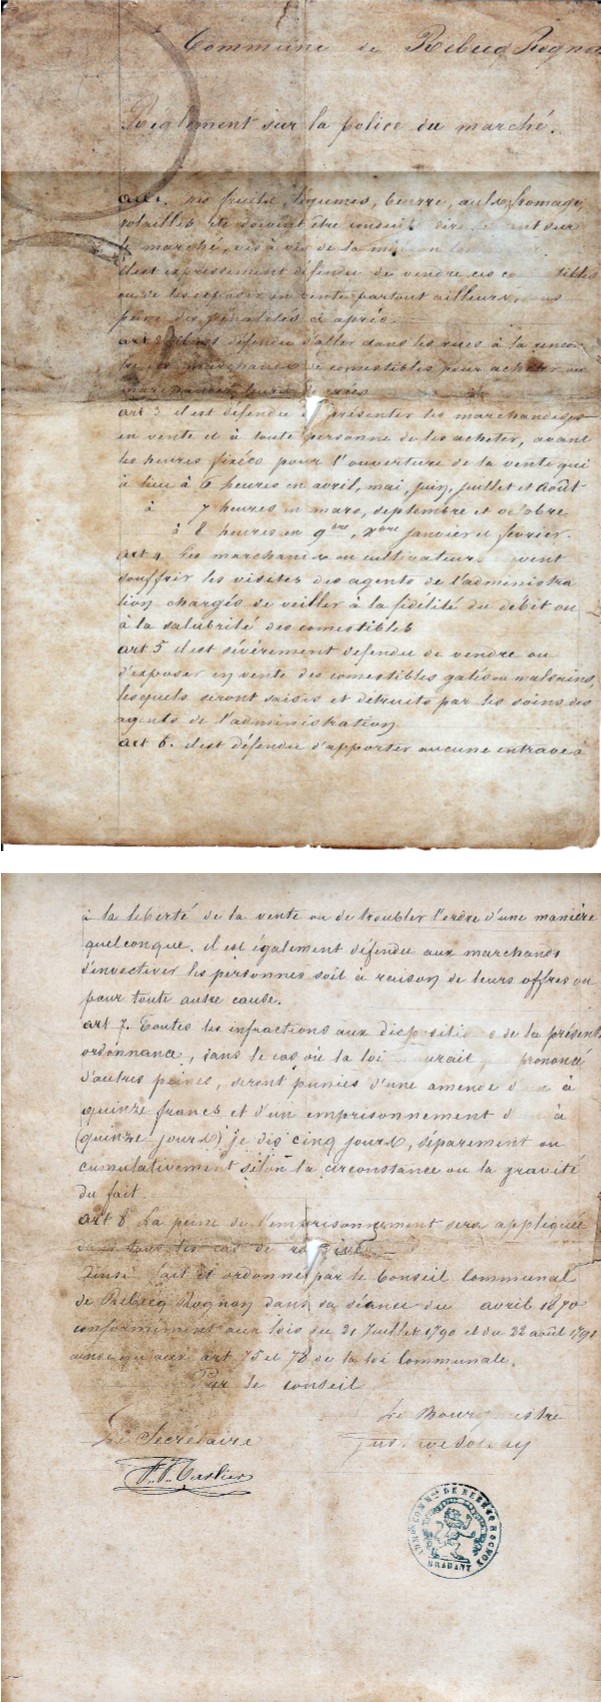 Commune de Rebecq Rogno
Réglement sur la police du marché.
art 1. les fruits, légumes, beurre, œufs, fromage,
volailles etc doivent être conduits dire ent sur
le marché, vis à vis de la
il est expressement défendu de vendre ces co tibles
ou de les exposer en vente partout ailleurs, ous
peine des pénalités ci après.
art 2 il est défendu d'aller dans les rues à la rencon
tre des marchands de comestibles pour acheter ou
marchander leurs denrées
art 3 il est défendu de présenter les marchandises
en vente et à toute personne de les acheter, avant
les heures fixées pour l'ouverture de la vente qui
a lieu à 6 heures en avril, mai, juin, juillet et Août
à 7 heures en mars, septembre et octobre
à 8 heures en 9bre, Xbre janvier et fevrier.
art 4 les marchands ou cultivateurs vent
souffrir les visites des agents de l'administra
tion chargés de veiller à la fidélité du débit ou
à la salubrité des comestibles
art 5 il est sévèrement defendu de vendre ou
d'exposer en vente des comestibles gatés ou malsains,
lesquels seront saisis et détruits par les soins des
agents de l'administration
art 6. il est défendu d'apporter aucune entrave à
à la liberté de la vente ou de troubler l'ordre d'une manière
quelconque. il est également défendu aux marchands
d'invectiver les personnes soit à raison de leurs offres ou
pour toute autre cause.
art 7. Toutes les infractions aux dispositio s de la présent
ordonnance, dans le cas où la loi urait prononcé
d'autres peines, seront punies d'une amende d à
quinze francs et d'un emprisonnement d à
(quinze jours) je dis cinq jours, séparement ou
cumulativement selon la circonstance ou la gravité
du fait.
art 8 La peine de l'emprisonnement sera appliquée
dans tous les cas de récidive
Ainsi fait et ordonné par le Conseil Communal
de Rebecq Rognon dans sa séance du avril 1870
conformément aux lois du 21 Juillet 1790 et du 22 août 1791
ainsi qu'aux art 75 et 78 de la loi Communale.
Par le conseil
Le Bourg estre
Le Secrétaire
ADMon COMMle DE REBECQ ROGNON
BRABANT